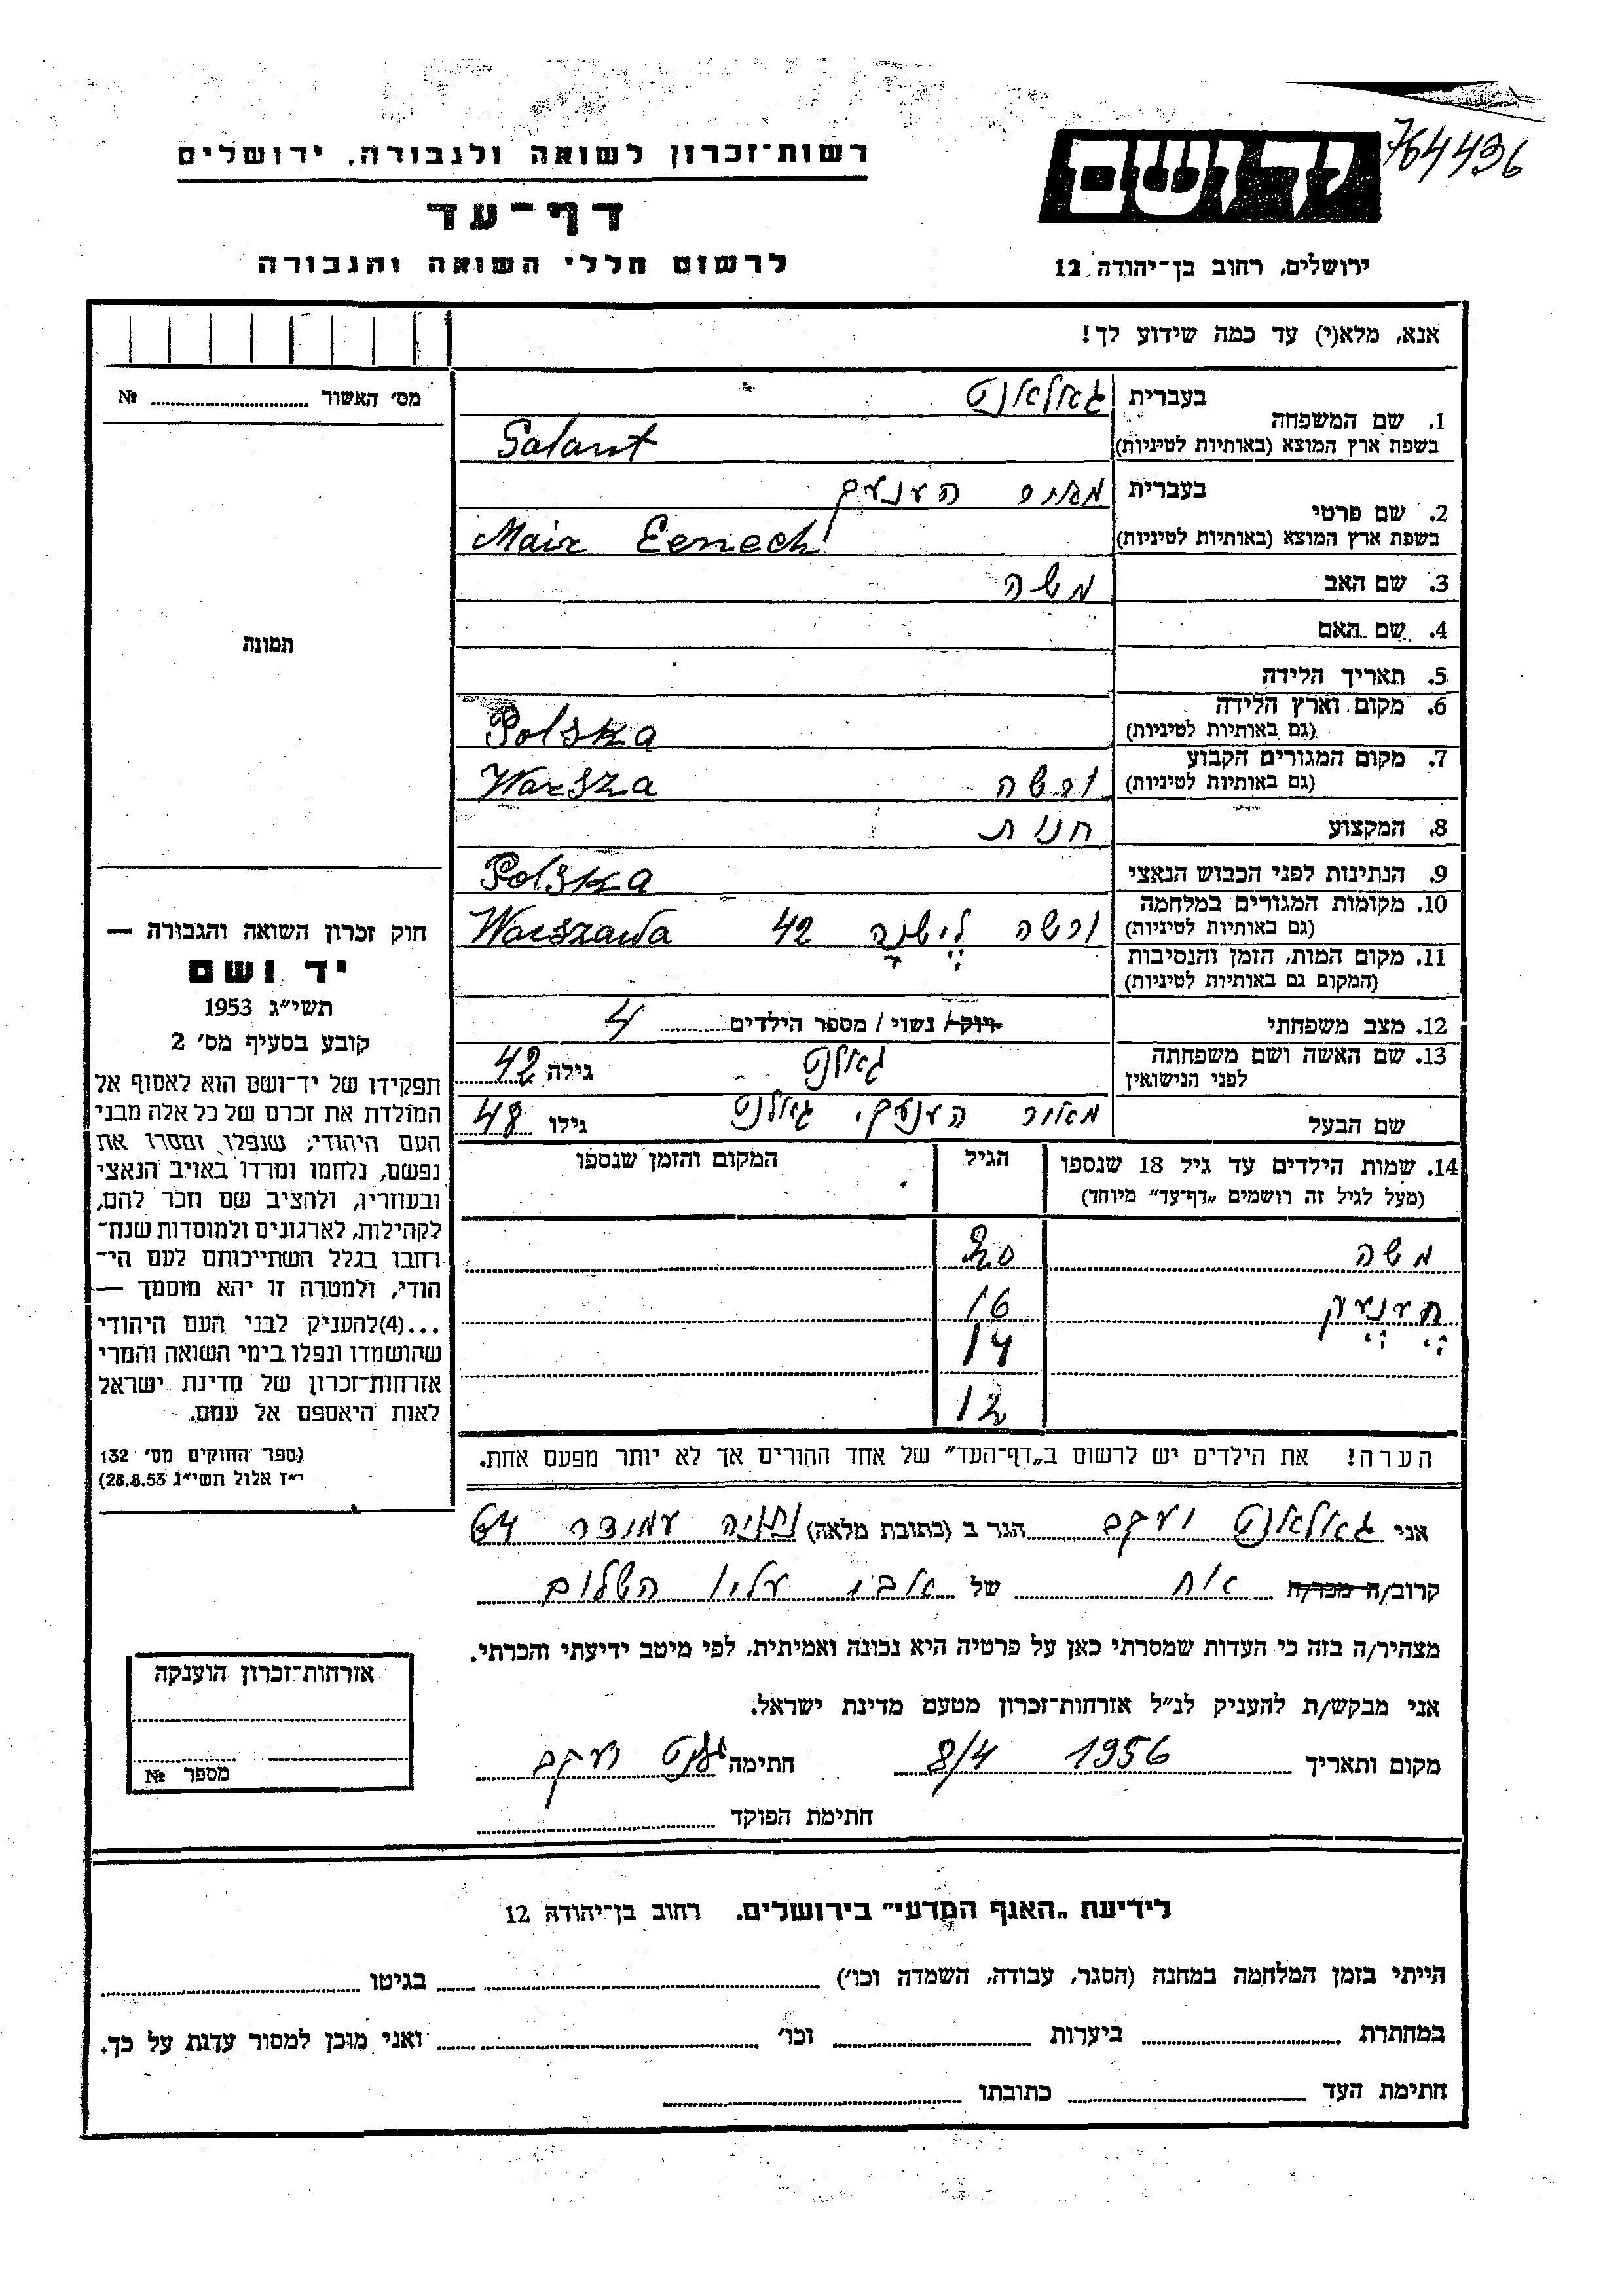 764436
יד ושם
רשות־זכרון לשואה ולגבורה, ירושלים
דף־עד
לרשום חללי השואה והגבורה
ירושלים, רחוב בן־יהודה 12
אנא, מלא(י) עד כמה שידוע לך!
מס׳ האשור № ............
תמונה
1. שם המשפחה
בעברית גאלאנט
בשפת ארץ המוצא (באותיות לטיניות) Galant
2. שם פרטי
בעברית מאיר הענעך
בשפת ארץ המוצא (באותיות לטיניות) Mair Eenech
3. שם האב משה
4. שם האם
5. תאריך הלידה
6. מקום וארץ הלידה
(גם באותיות לטיניות) Polska
7. מקום המגורים הקבוע
(גם באותיות לטיניות) ורשה Warsza
8. המקצוע חנות
9. הנתינות לפני הכבוש הנאצי Polska
10. מקומות המגורים במלחמה
(גם באותיות לטיניות) ורשה 42 Warszawa
11. מקום המות, הזמן והנסיבות
(המקום גם באותיות לטיניות)
12. מצב משפחתי רוק/ נשוי / מספר הילדים 4
13. שם האשה ושם משפחתה
לפני הנישואין גאלנט גילה 42
שם הבעל מאיר הענעך גאלנט גילו 48
14. שמות הילדים עד גיל 18 שנספו הגיל המקום והזמן שנספו
(מעל לגיל זה רושמים „דף־עד״ מיוחד)
משה 20
16
14
12
הערה! את הילדים יש לרשום ב„דף־העד״ של אחד ההורים אך לא יותר מפעם אחת.
חוק זכרון השואה והגבורה —
יד ושם
תשי״ג 1953
קובע בסעיף מס׳ 2
תפקידו של יד־ושם הוא לאסוף אל
המולדת את זכרם של כל אלה מבני
העם היהודי, שנפלו ומסרו את
נפשם, נלחמו ומרדו באויב הנאצי
ובעוזריו, ולהציב שם וזכר להם,
לקהילות, לארגונים ולמוסדות שנח־
רבו בגלל השתייכותם לעם הי־
הודי, ולמטרה זו יהא מוסמך —
...(4) להעניק לבני העם היהודי
שהושמדו ונפלו בימי השואה והמרי
אזרחות־זכרון של מדינת ישראל
לאות היאספם אל עמם.
(ספר החוקים מס׳ 132
י״ז אלול תשי״ג 28.8.53)
אני גאלאנט יעקב הגר ב (כתובת מלאה) נתניה 64
קרוב/ה מכר/ה אח של אבי עליו השלום
מצהיר/ה בזה כי העדות שמסרתי כאן על פרטיה היא נכונה ואמיתית, לפי מיטב ידיעתי והכרתי.
אני מבקש/ת להעניק לנ״ל אזרחות־זכרון מטעם מדינת ישראל.
מקום ותאריך 1956 8/4 חתימה גלנט יעקב
חתימת הפוקד
אזרחות־זכרון הוענקה
מספר №
לידיעת „האגף המדעי״ בירושלים. רחוב בן־יהודה 12
הייתי בזמן המלחמה במחנה (הסגר, עבודה, השמדה וכו׳) ............ בגיטו ............
במחתרת ............ ביערות ............ וכו׳ ............ ואני מוכן למסור עדות על כך.
חתימת העד ............ כתובתו ............